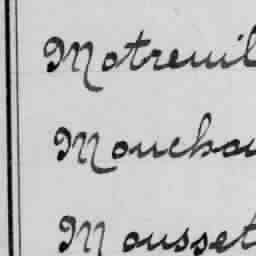 Motreuil
Mouchou
Mousset